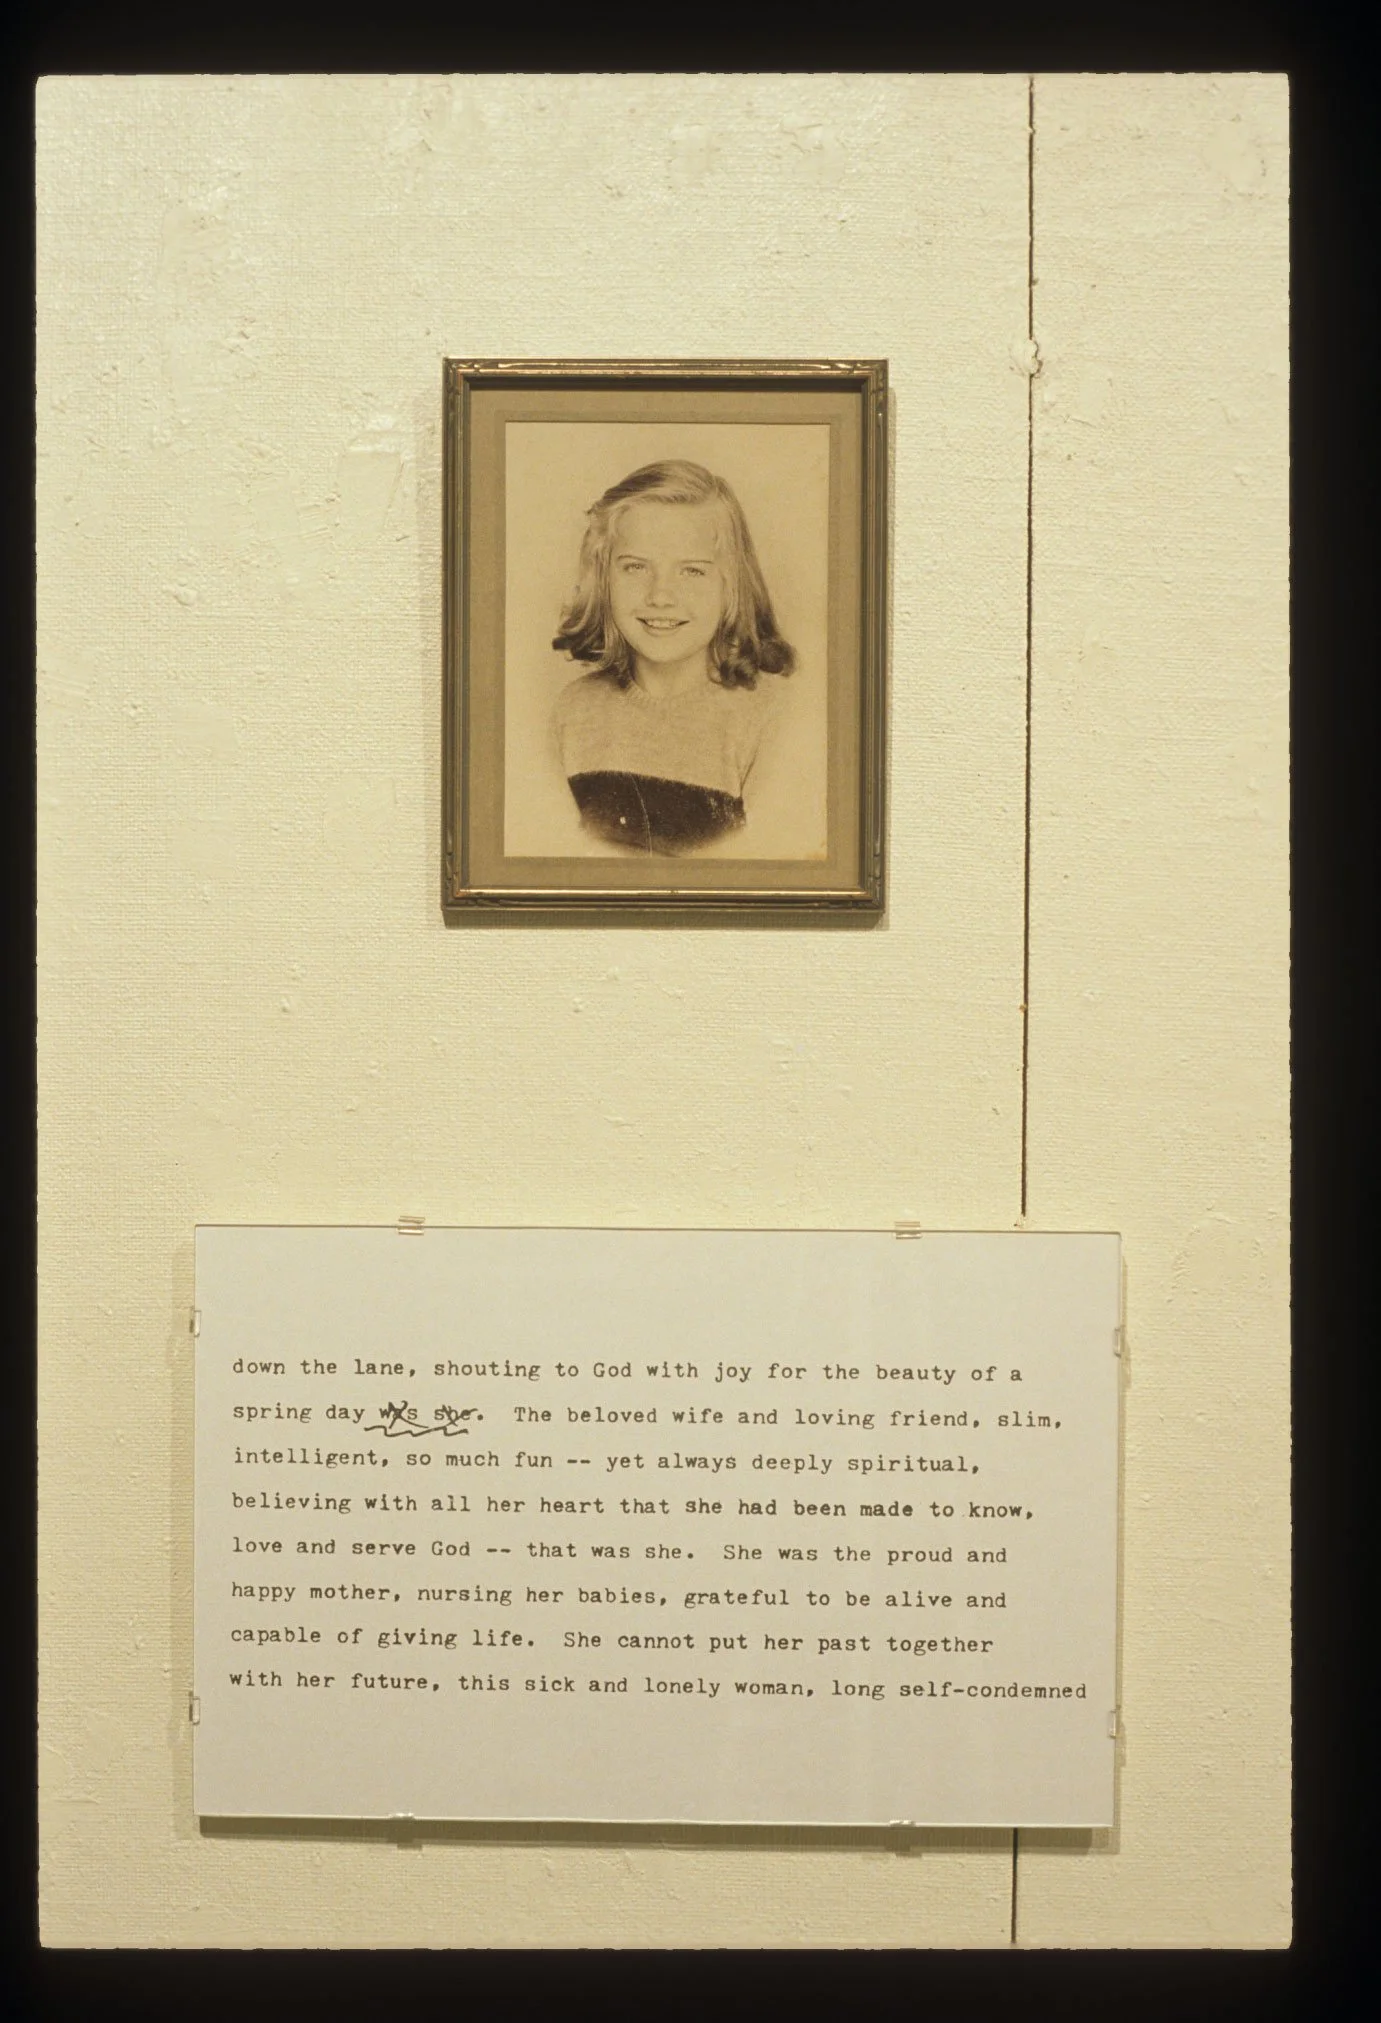 down the lane, shouting to God with joy for the beauty of a
spring day was she.  The beloved wife and loving friend, slim,
intelligent, so much fun -- yet always deeply spiritual,
believing with all her heart that she had been made to know,
love and serve God -- that was she.  She was the proud and
happy mother, nursing her babies, grateful to be alive and
capable of giving life.  She cannot put her past together
with her future, this sick and lonely woman, long self-condemned